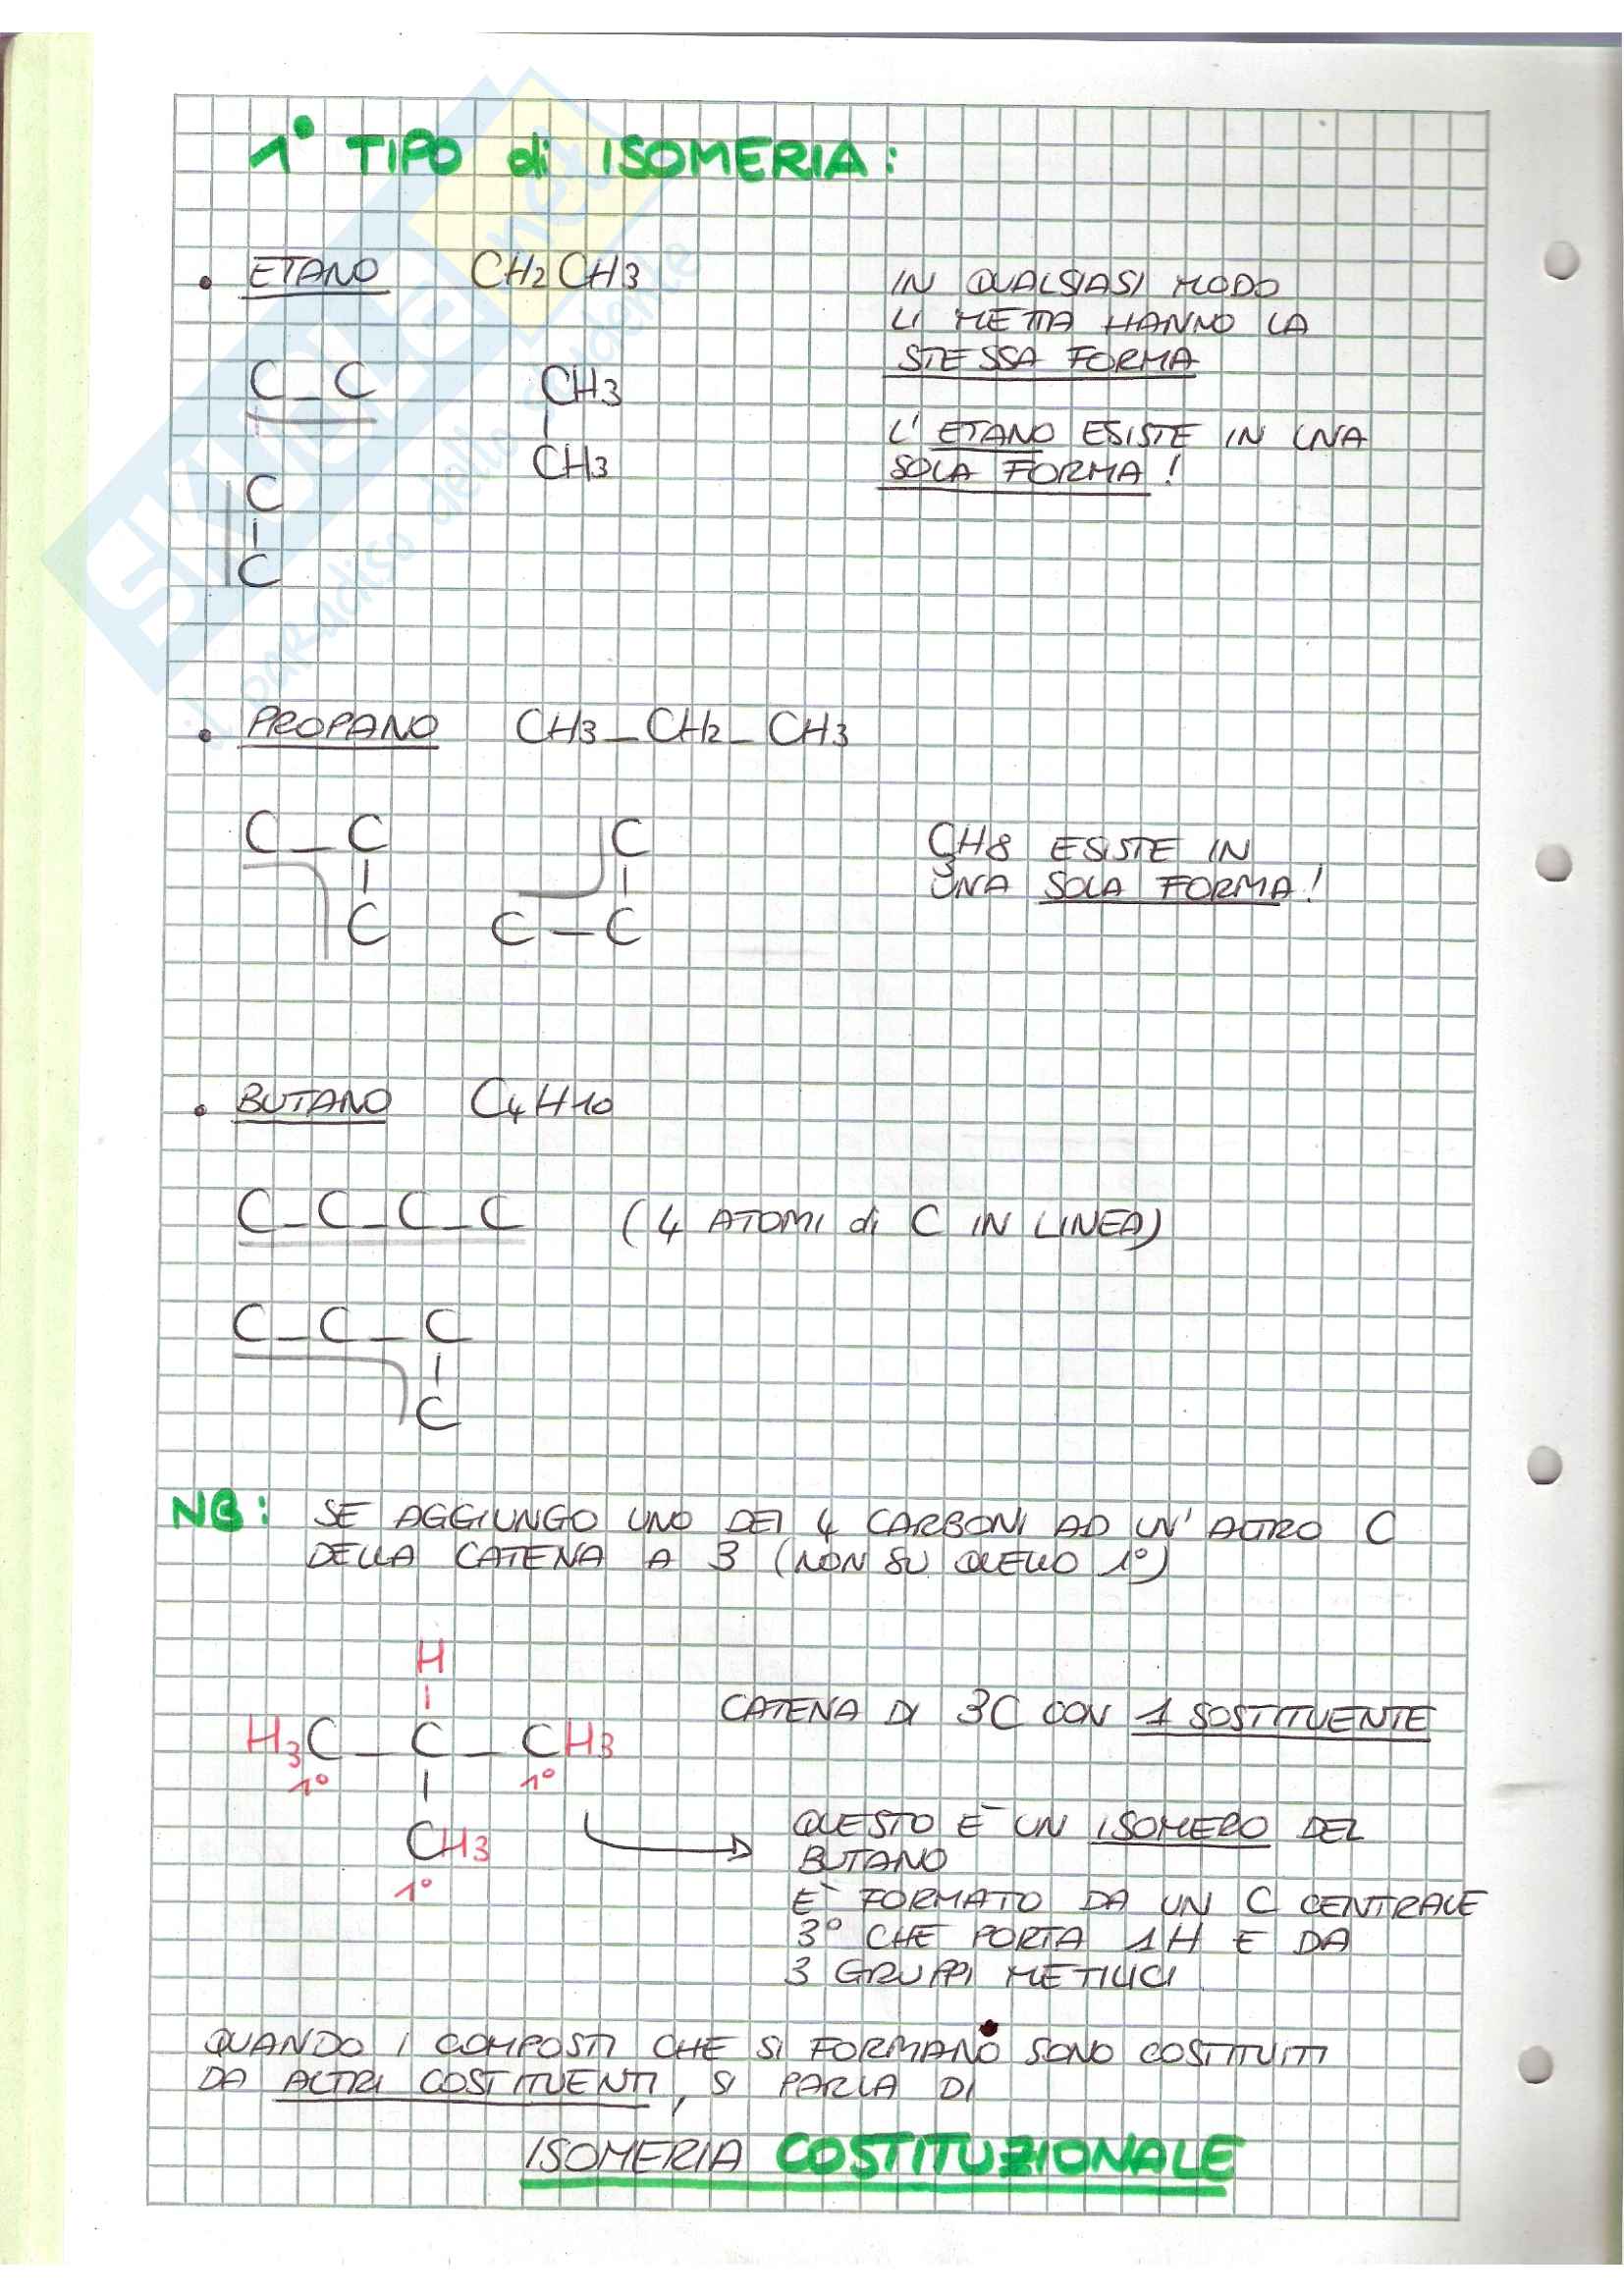 1° TIPO di ISOMERIA:
• ETANO CH2CH3
IN QUALSIASI MODO
LI METTA HANNO LA
STESSA FORMA
C_C
CH3
|
CH3
L'ETANO ESISTE IN UNA
SOLA FORMA!
C
|
C
SKUOLA.net
il paradiso dello studente
• PROPANO CH3_CH2_CH3
C_C
|
C
C
|
C_C
CH8 ESISTE IN
UNA SOLA FORMA!
• BUTANO C4H10
C_C_C_C (4 ATOMI di C IN LINEA)
C_C_C
|
C
NB: SE AGGIUNGO UNO DEI 4 CARBONI AD UN'ALTRO C
DELLA CATENA A 3 (NON SU QUELLO 1°)
H
|
H3C_C_CH3
1° | 1°
CH3
1°
CATENA DI 3C CON 1 SOSTITUENTE
QUESTO È UN ISOMERO DEL
BUTANO
E' FORMATO DA UN C CENTRALE
3° CHE PORTA 1H E DA
3 GRUPPI METILICI
QUANDO I COMPOSTI CHE SI FORMANO SONO COSTITUITI
DA ALTRI COSTITUENTI, SI PARLA DI
ISOMERIA COSTITUZIONALE